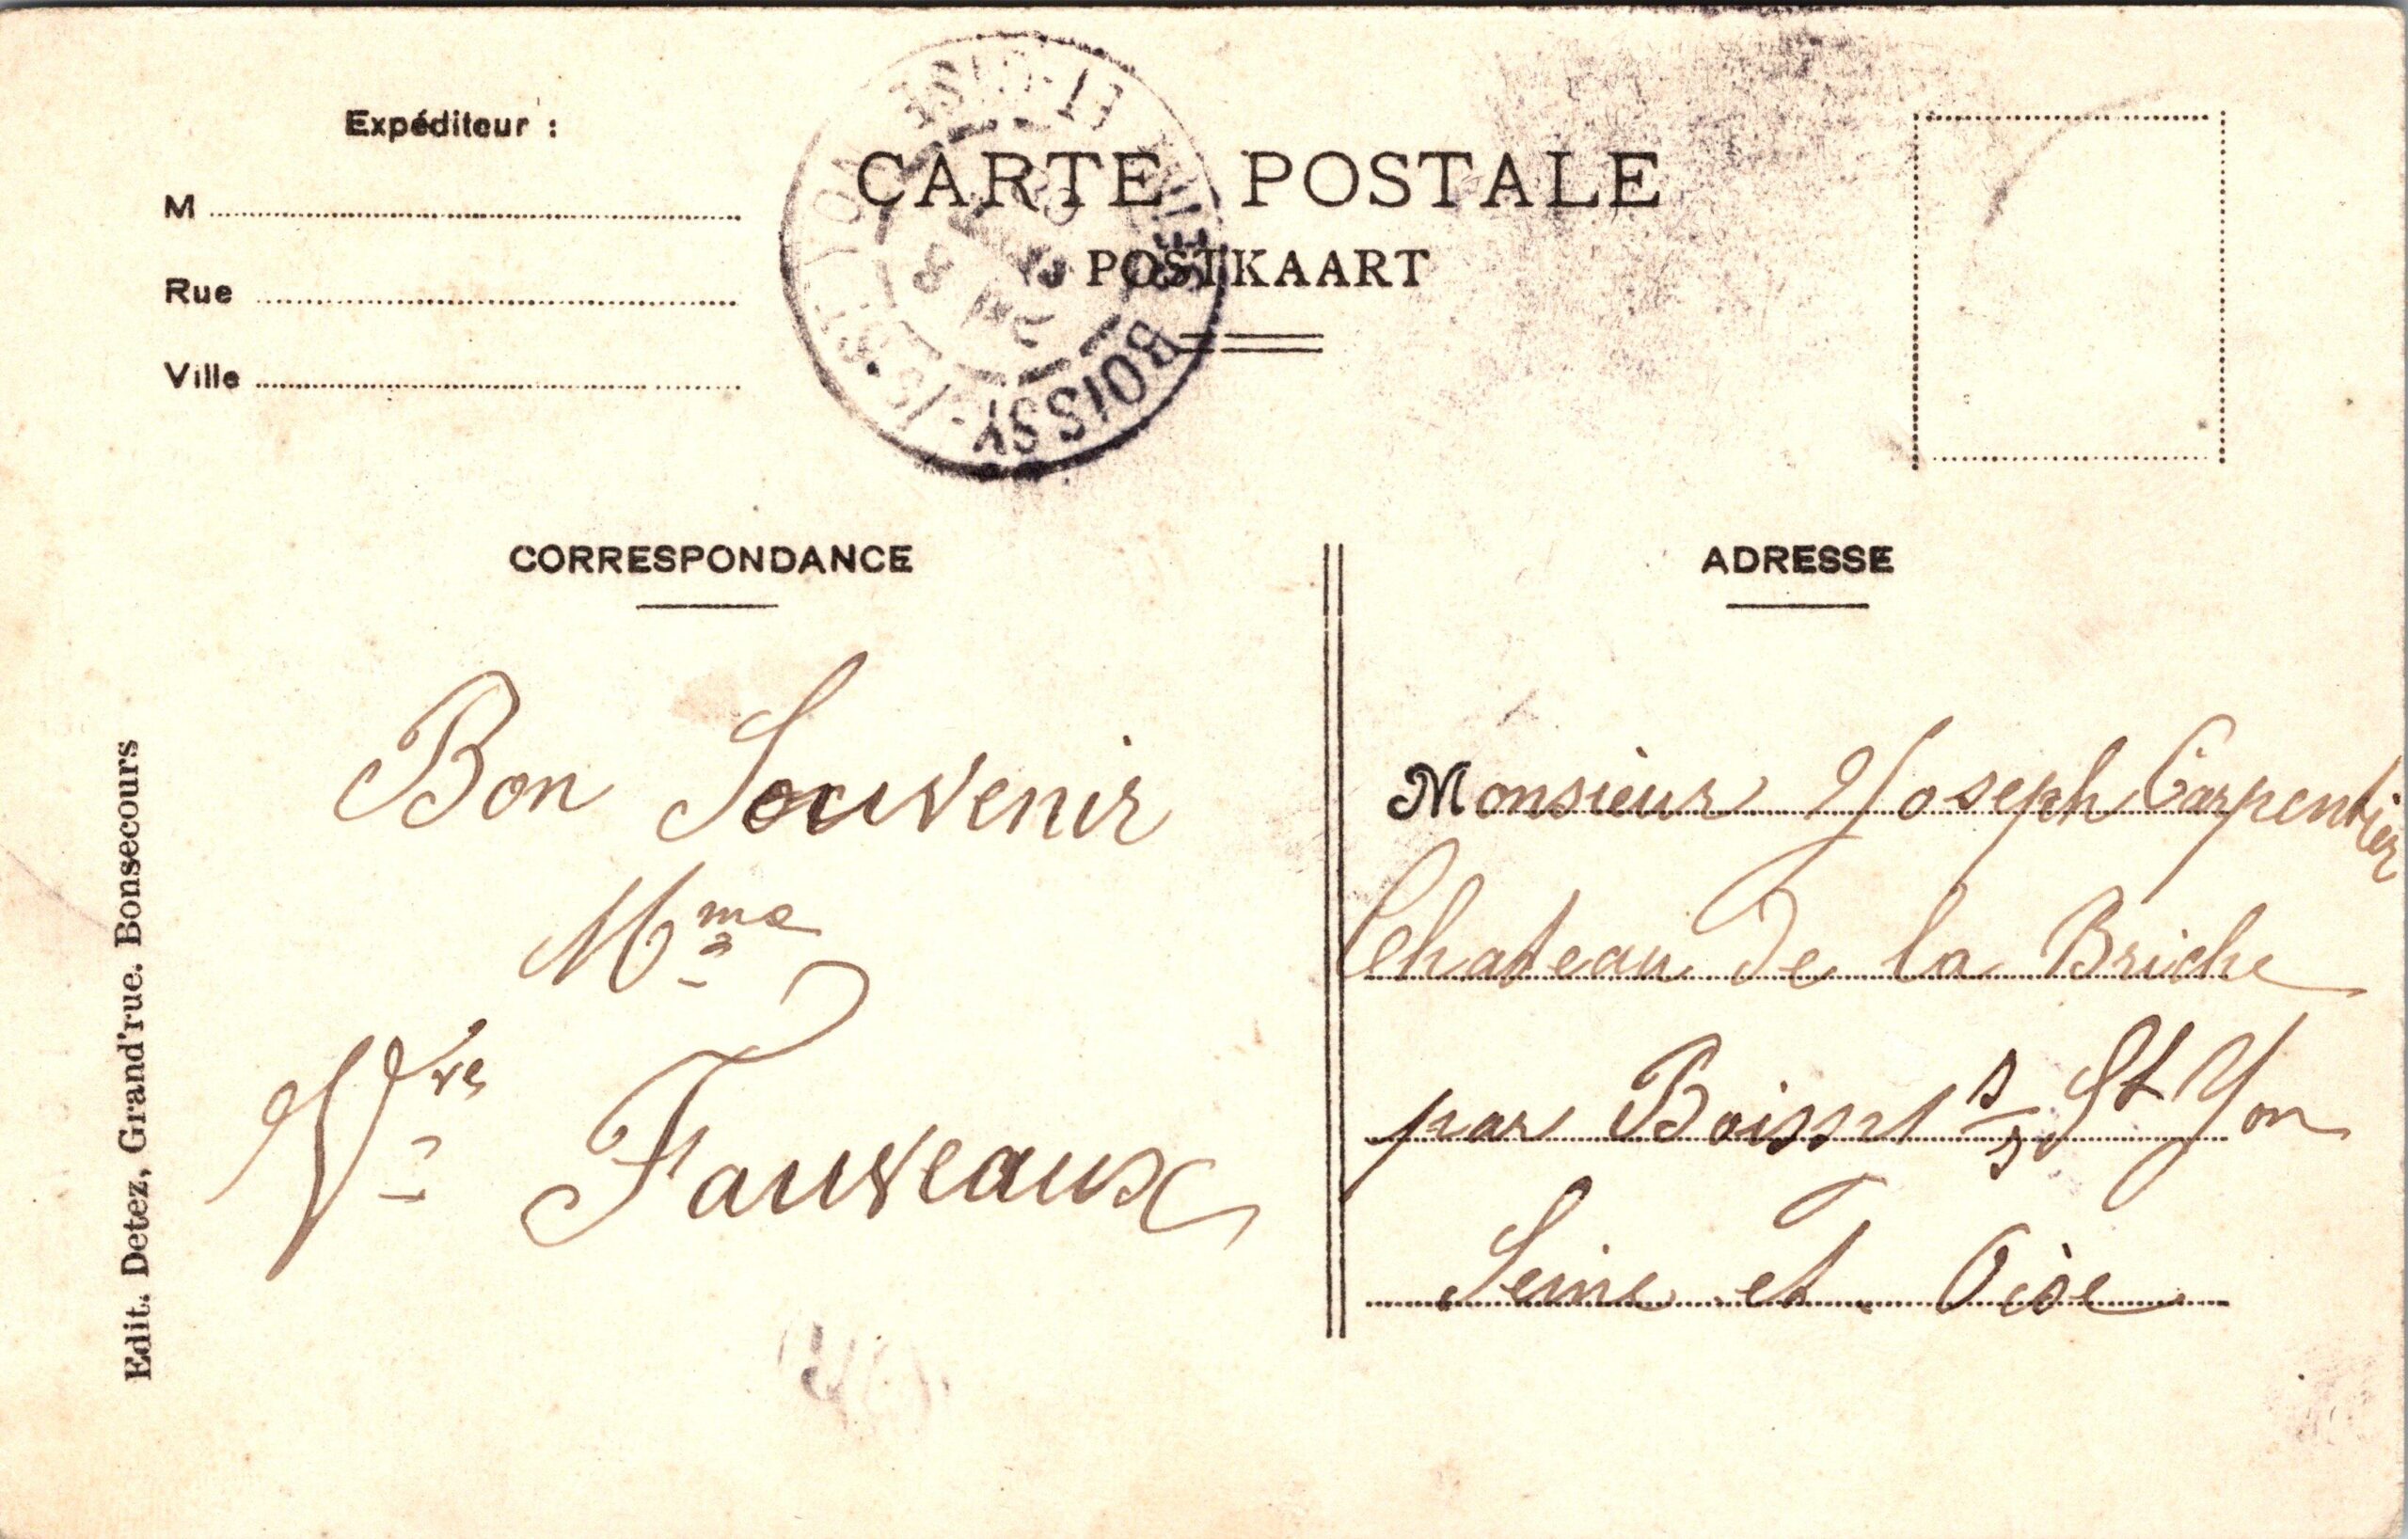 Expéditeur :
M
Rue
Ville
CARTE POSTALE
POSTKAART
BOISSY-S-ST YON
SEINE-ET-OISE
CORRESPONDANCE
ADRESSE
Bon Souvenir
Mme
Vve Fauveaux
Monsieur Joseph Carpentier
Chateau De la Briche
par Boissy s/s St Yon
Seine et Oise
Edit. Detez, Grand'rue. Bonsecours